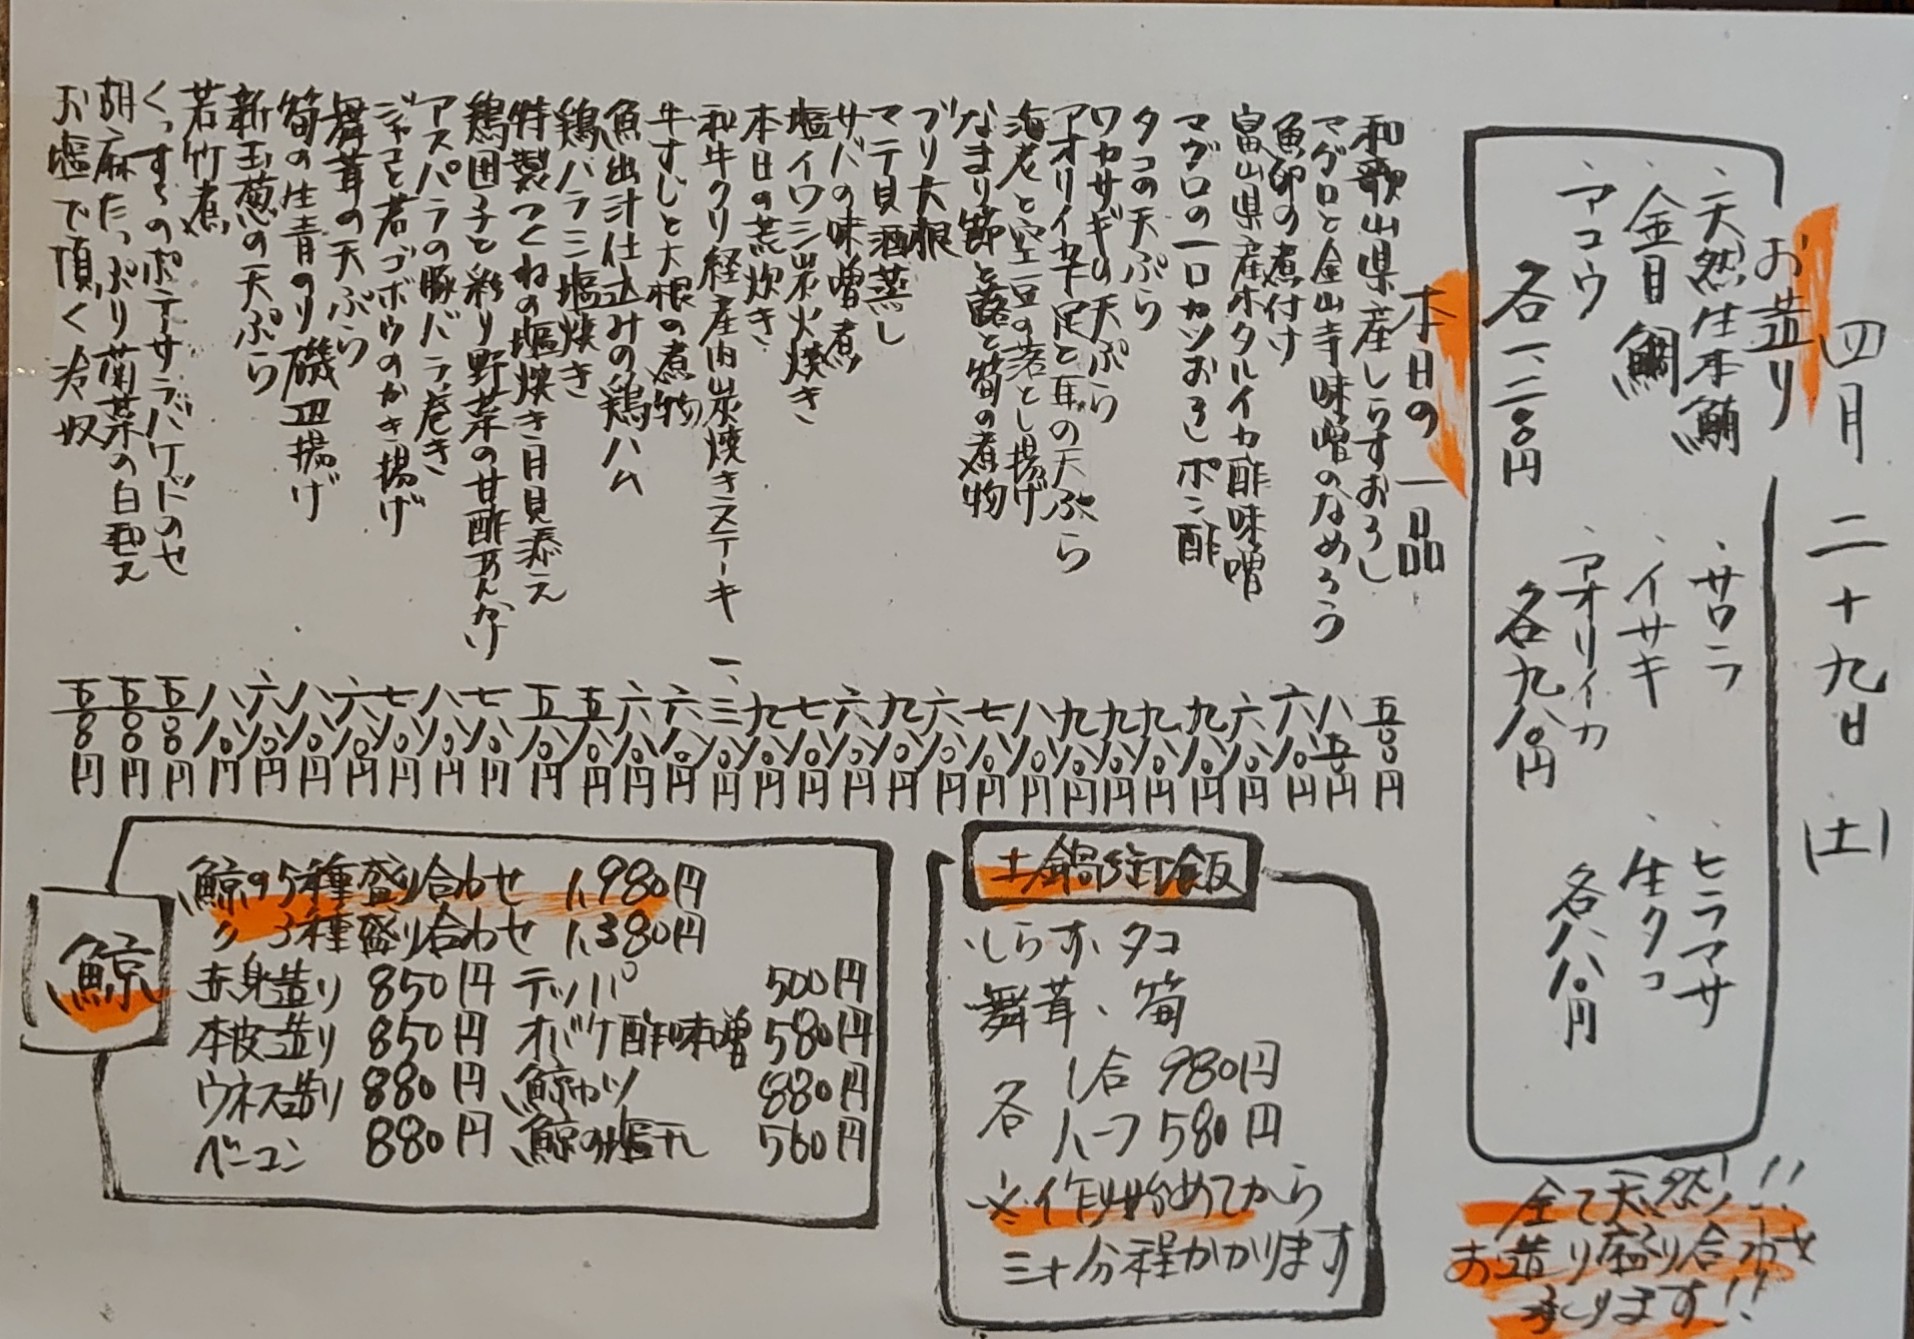 四月二十九日(土)
お造り
・天然生本鮪
・金目鯛
・アコウ
各一、二〇〇円
・サワラ
・イサキ
・アオリイカ
各九八〇円
・ヒラマサ
・生タコ
各八八〇円
全て天然!!
お造り盛り合わせ
承ります!!
本日の一品
和歌山県産しらすおろし 五〇〇円
マグロと金山寺味噌のなめろう 八五〇円
魚卵の煮付け 六八〇円
富山県産ホタルイカ酢味噌 六八〇円
マグロの一口カツおろしポン酢 九八〇円
タコの天ぷら 九八〇円
ワカサギの天ぷら 九八〇円
アオリイカ下足と耳の天ぷら 九八〇円
海老と空豆の落とし揚げ 八八〇円
なまり節と蕗と筍の煮物 七八〇円
ブリ大根 六八〇円
マテ貝酒蒸し 九八〇円
サバの味噌煮 六八〇円
塩イワシ炭火焼き 七八〇円
本日の荒炊き 九八〇円
和牛クリ経産肉炭焼きステーキ 一、三八〇円
牛すじと大根の煮物 六八〇円
魚出汁仕込みの鶏ハム 六八〇円
鶏ハラミ塩焼き 五八〇円
特製つくねの塩焼き月見添え 五八〇円
鶏団子と彩り野菜の甘酢あんかけ 七八〇円
アスパラの豚バラ巻き 八八〇円
ジャコと若ゴボウのかき揚げ 七八〇円
舞茸の天ぷら 六八〇円
筍の生青のり磯辺揚げ 八八〇円
新玉葱の天ぷら 六八〇円
若竹煮 八八〇円
くっすくのポテサラバケットのせ 五八〇円
胡麻たっぷり菊菜の白和え 五〇〇円
お塩で頂く冷奴 五〇〇円
土鍋御飯
・しらす、タコ
舞茸、筍
各 1合 980円
ハーフ 580円
※作り始めてから
三十分程かかります
鯨
鯨の5種盛り合わせ 1,980円
〃 3種盛り合わせ 1,380円
赤身造り 850円 テッパ 500円
本皮造り 850円 オバケ酢味噌 580円
ウネス造り 880円 鯨カツ 880円
ベーコン 880円 鯨の塩干し 560円